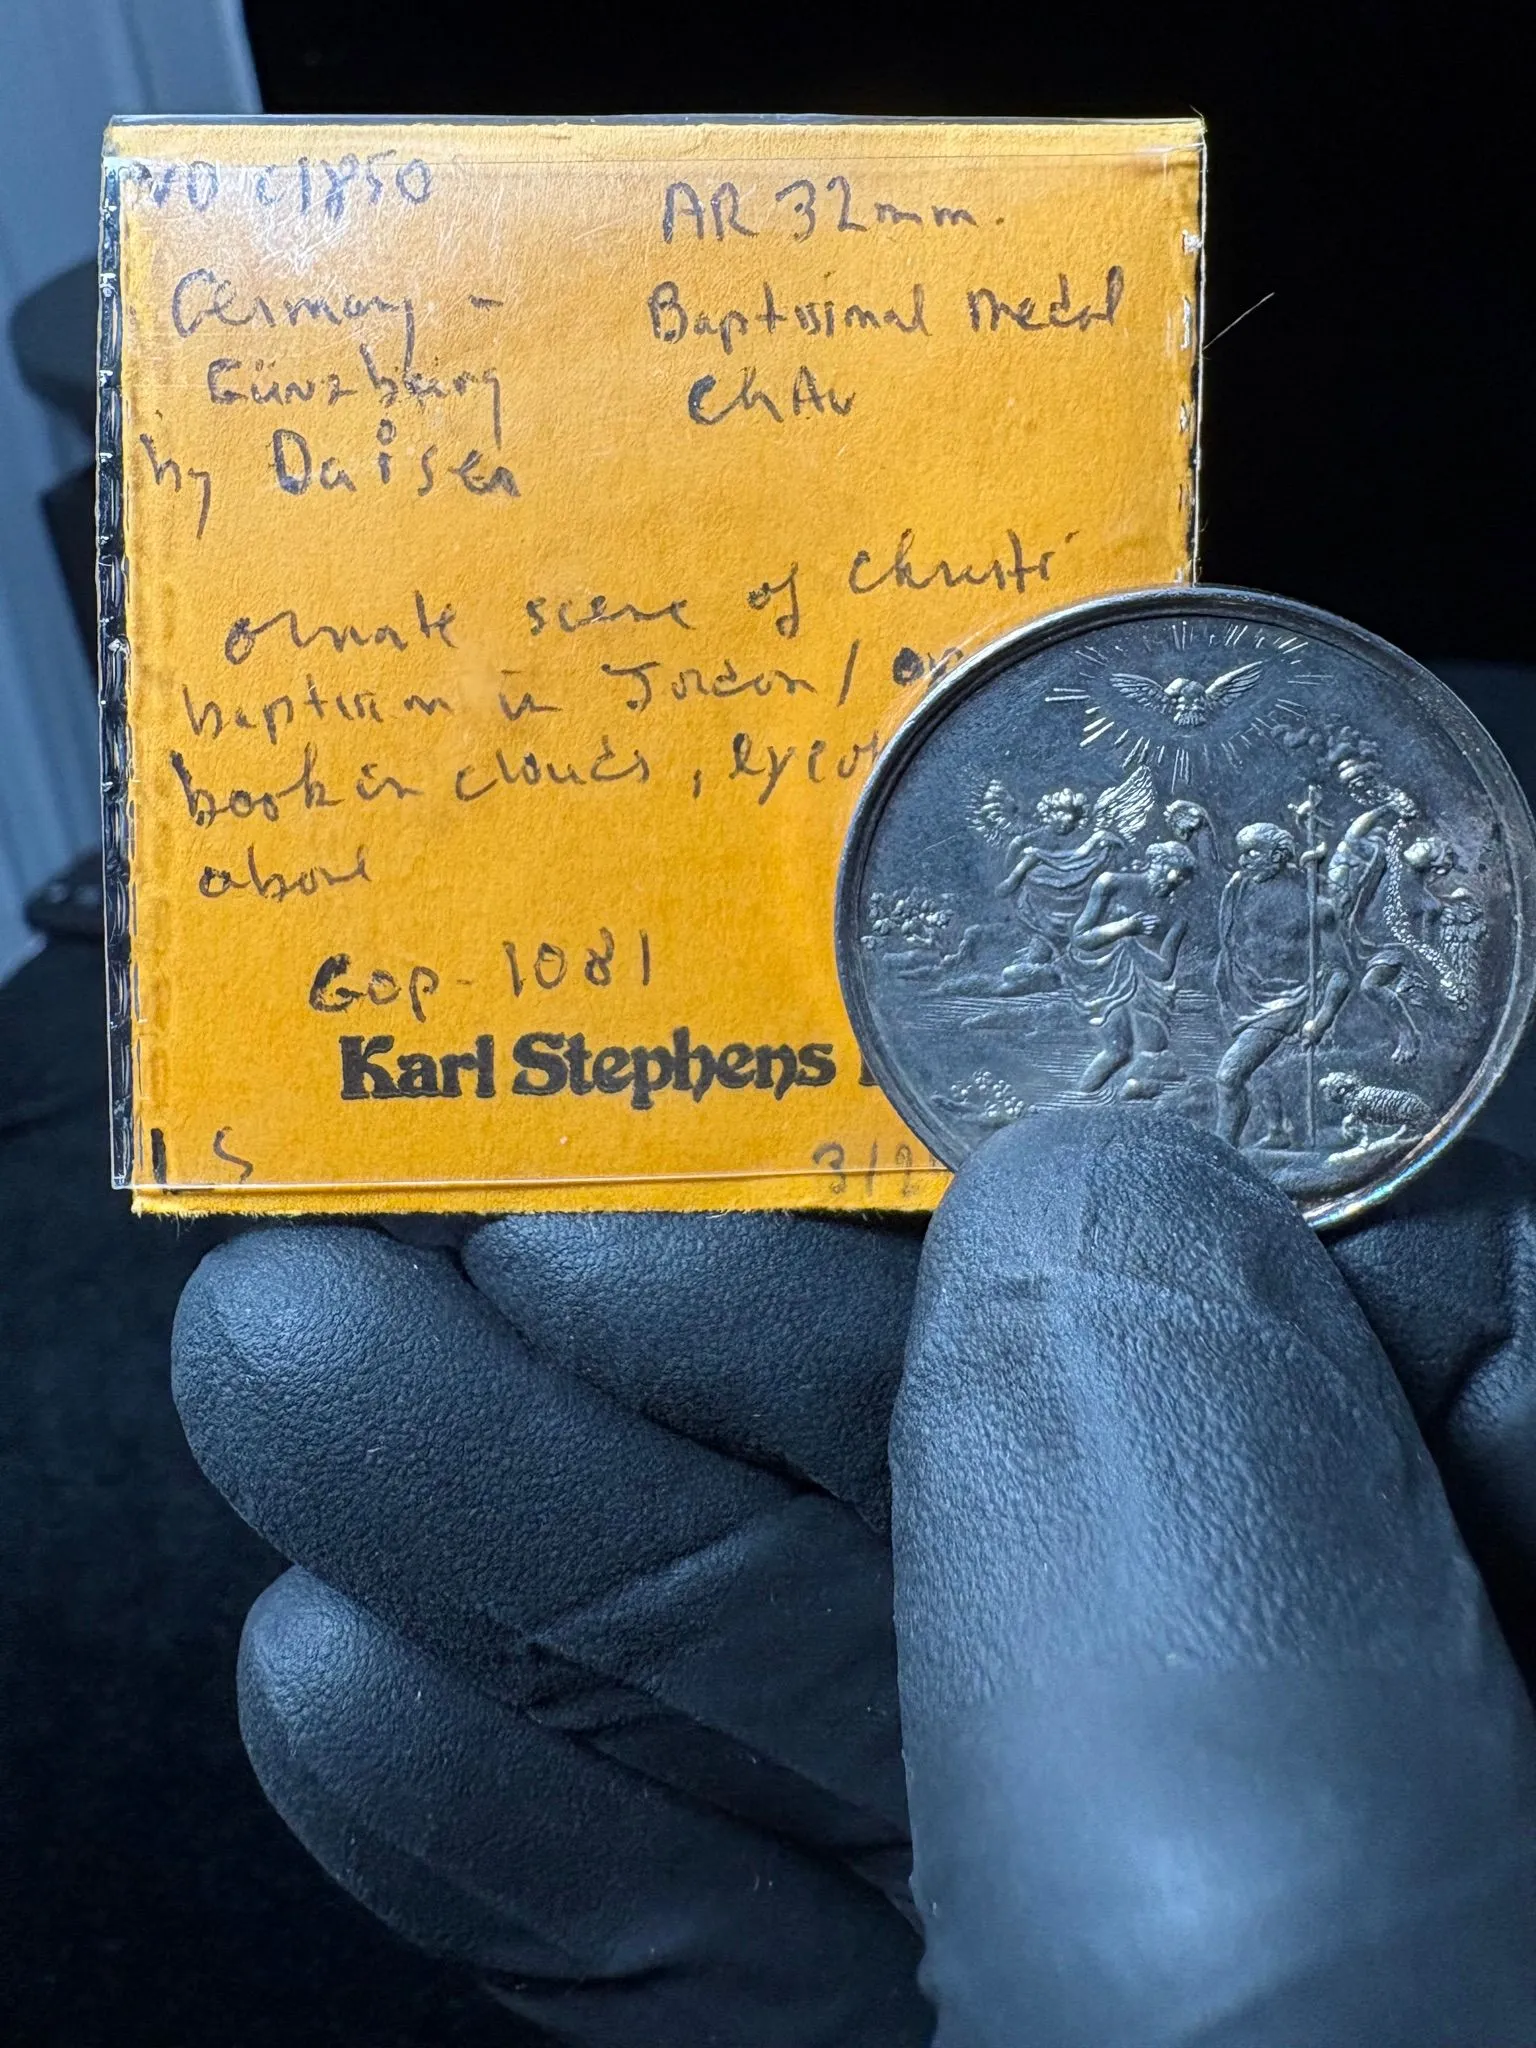 ND c1850
AR 32mm.
Germany -
Günzburg
by Daiser
Baptismal medal
ChAu
ornate scene of Christs'
baptism in Jordan / on
book in clouds, eye of
above
Gop - 1081
Karl Stephens
LS
3/2